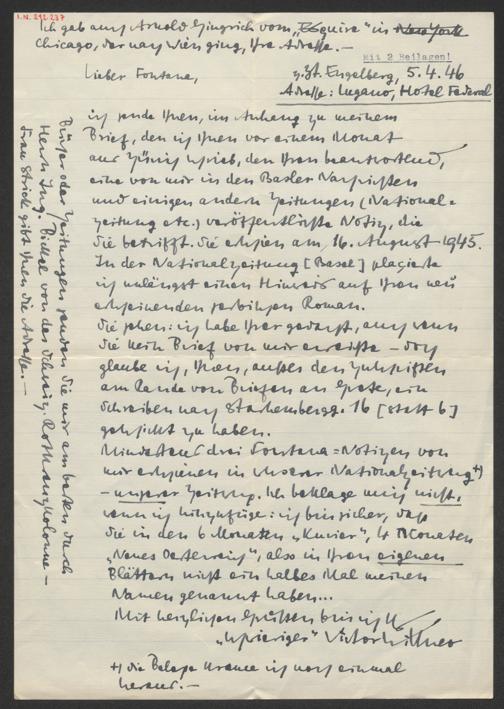 I.N. 212.237
Ich gab auch Arnold Gingrich vom „Esquire" in New York
Chicago, der nach Wien ging, Ihre Adresse. —
Mit 2 Beilagen!
Lieber Fontana,
z.Zt. Engelberg, 5.4.46
Adresse: Lugano, Hotel Federal
ich sende Ihnen, im Anhang zu meinem
Brief, den ich Ihnen vor einem Monat
aus Zürich schrieb, den Ihren beantwortend,
eine von mir in den Basler Nachrichten
und einigen andern Zeitungen (National=
zeitung etc.) veröffentlichte Notiz, die
Sie betrifft. Sie erschien am 16. August 1945.
In der Nationalzeitung [Basel] placierte
ich unlängst einen Hinweis auf Ihren neu
erscheinenden serbischen Roman.
Sie sehen: ich habe Ihrer gedacht, auch wenn
Sie kein Brief von mir erreichte – doch
glaube ich, Ihnen, außer den Zuschriften
am Rande von Briefen an Grete, ein
Schreiben nach Starhembergg. 16 [statt 6]
geschickt zu haben.
Mindestens drei Fontana=Notizen von
mir erschienen in unserer Nationalzeitung +)
– unserer Zeitung. Ich beklage mich nicht,
wenn ich hinzufüge: ich bin sicher, daß
Sie in den 6 Monaten „Kurier", 4 Monaten
„Neues Oesterreich", also in Ihren eigenen
Blättern nicht ein halbes Mal meinen
Namen genannt haben...
Mit herzlichen Grüßen bin ich Ihr
Victor Wittner
+) die Belege krame ich noch einmal
heraus. —
Bücher oder Zeitungen senden Sie mir am besten durch
Herrn Ing. Bickel von der Schweiz. Rotkreuzkolonne –
Frau Strick gibt Ihnen die Adresse. —